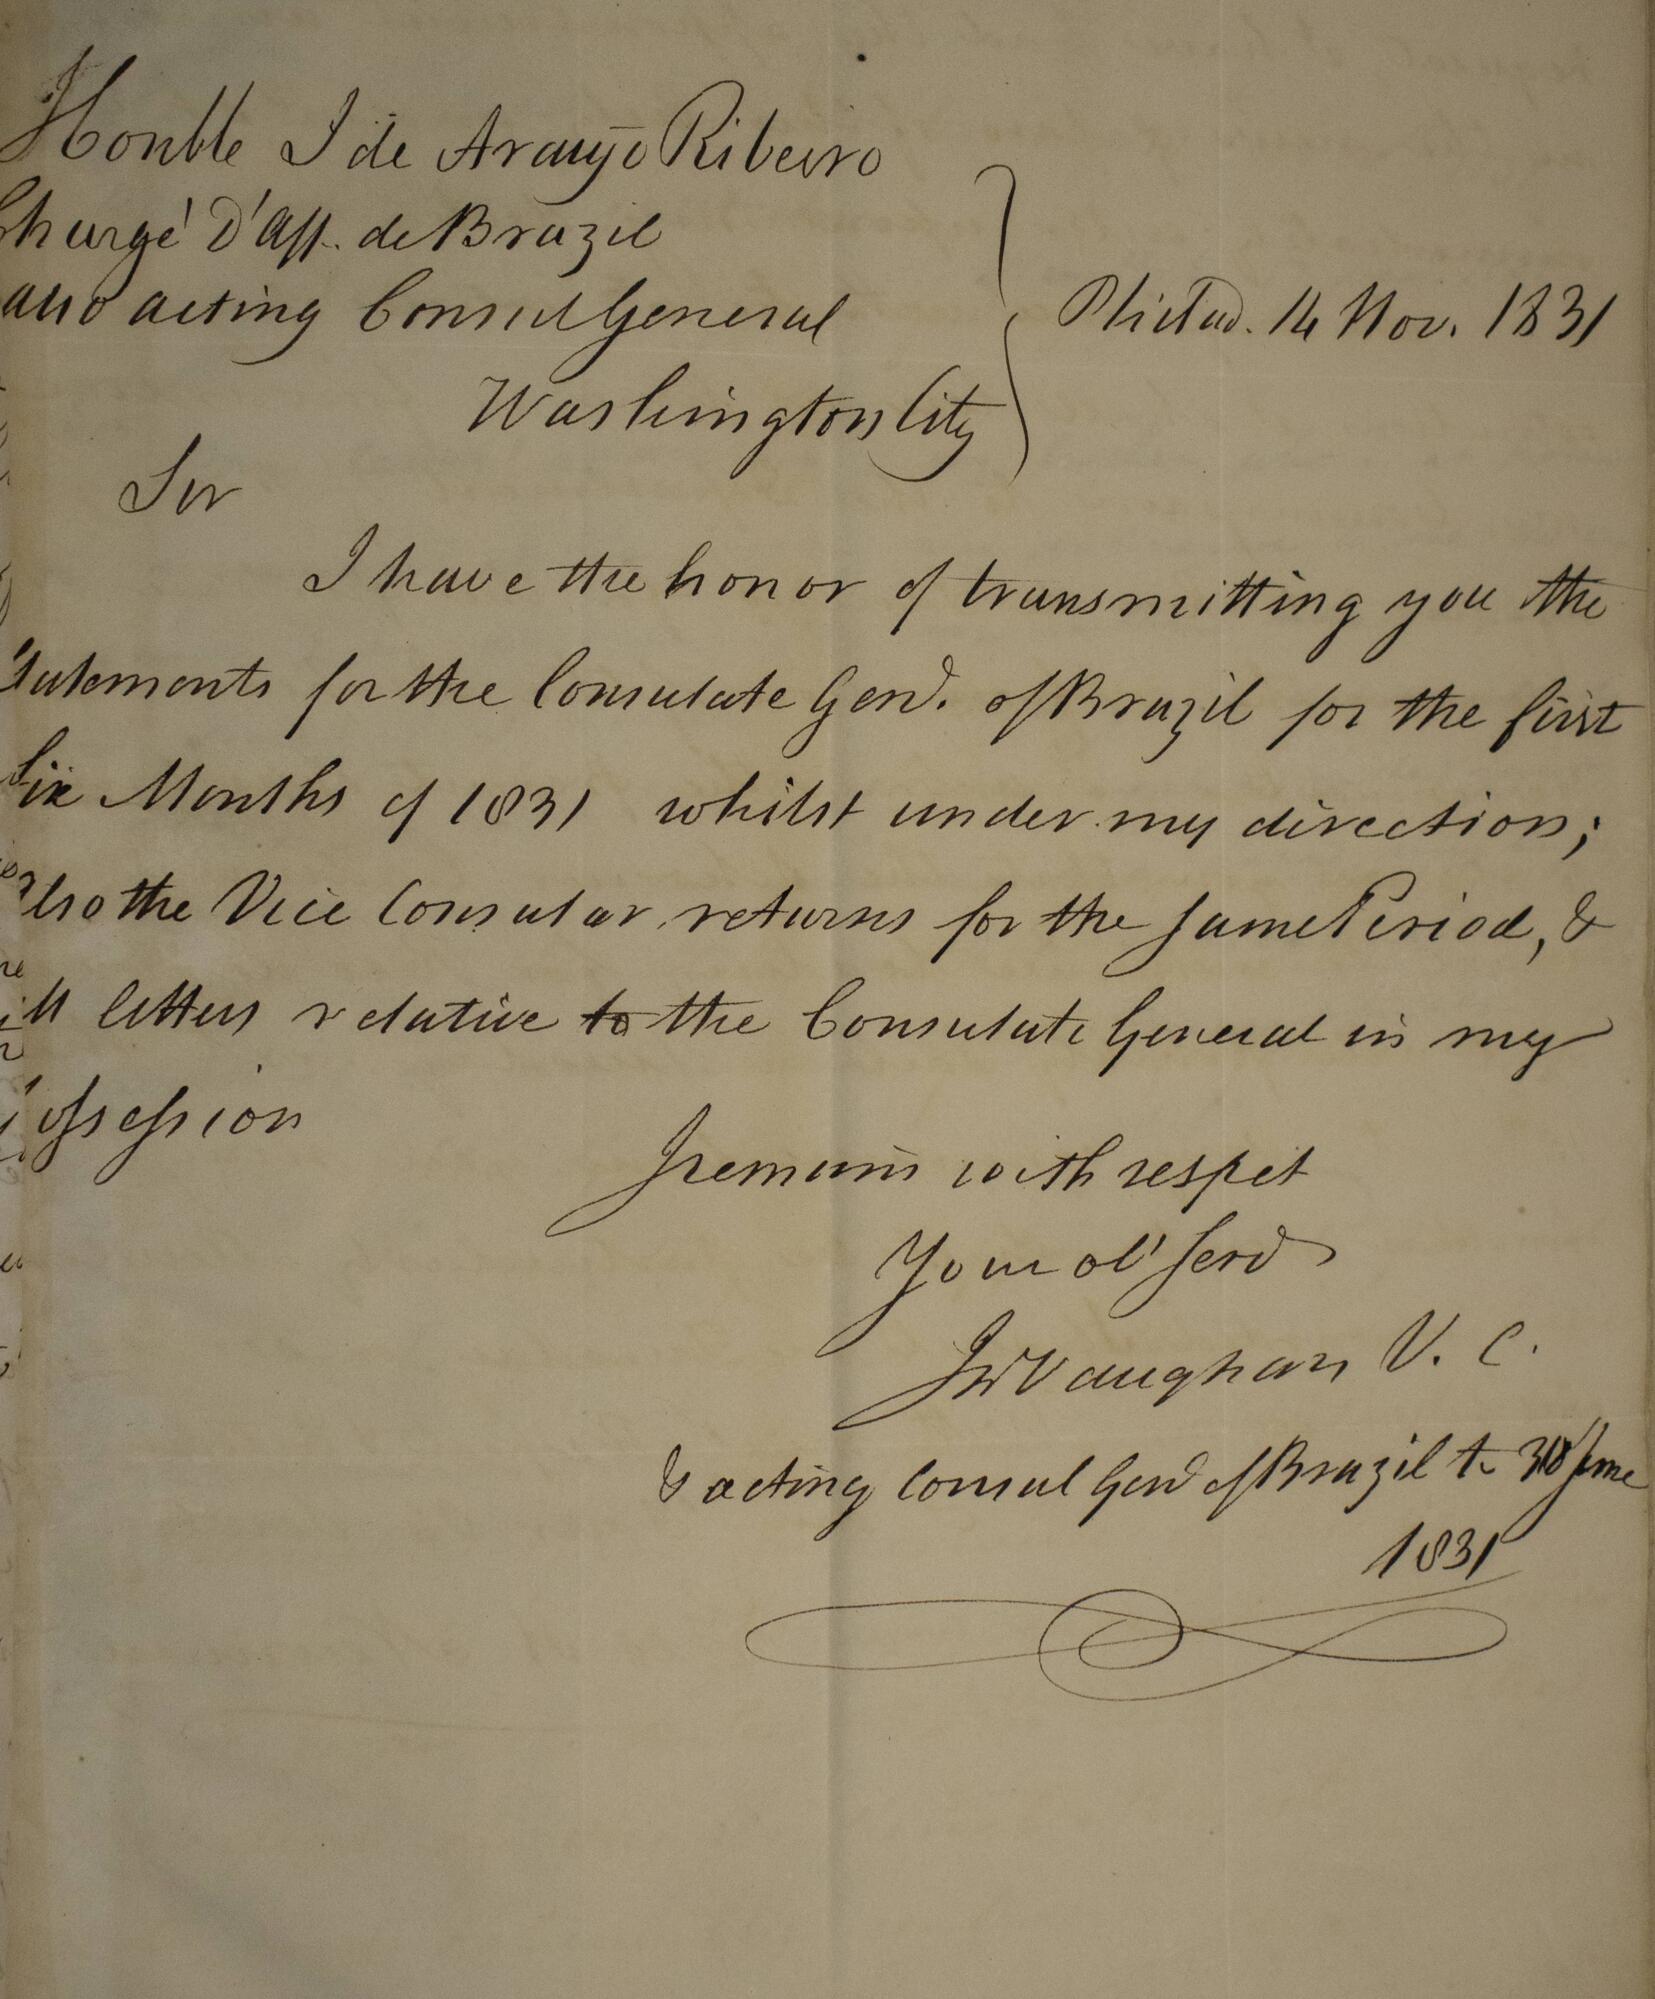 Honble J de Araujo Ribeiro
Chargé D'Aff. de Brazil
also acting Consul General
Washington City
Philad. 14 Nov. 1831
Sir
I have the honor of transmitting you the
Statements for the Consulate Genl. of Brazil for the first
Six Months of 1831 whilst under my direction;
also the Vice Consular returns for the same Period, &
all letters relative to the Consulate General in my
possession
I remain with respect
Your ob' Serv
Jn Vaughan V. C.
& acting Consul Genl of Brazil to 30 June
1831